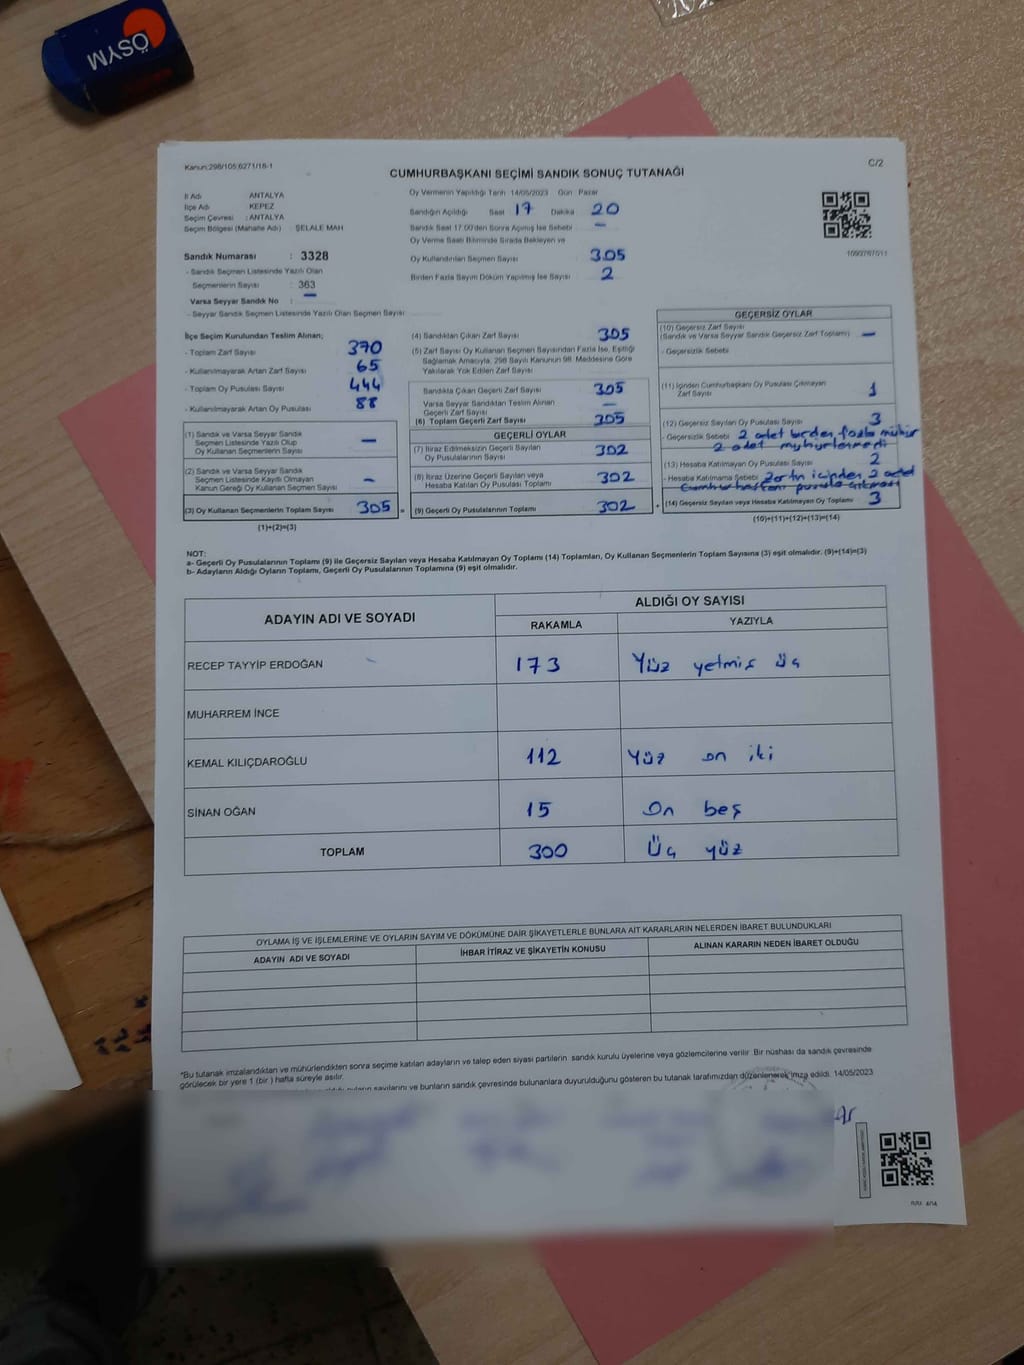 ÖSYM
Kanun:298/105;6271/18-1
C/2
CUMHURBAŞKANI SEÇİMİ SANDIK SONUÇ TUTANAĞI
İl Adı ANTALYA
İlçe Adı KEPEZ
Seçim Çevresi : ANTALYA
Seçim Bölgesi (Mahalle Adı) : ŞELALE MAH
Sandık Numarası : 3328
- Sandık Seçmen Listesinde Yazılı Olan
Seçmenlerin Sayısı : 363
Varsa Seyyar Sandık No : —
- Seyyar Sandık Seçmen Listesinde Yazılı Olan Seçmen Sayısı
Oy Vermenin Yapıldığı Tarih 14/05/2023 Gün Pazar
Sandığın Açıldığı Saat 17 Dakika 20
Sandık Saat 17.00'den Sonra Açılmış İse Sebebi —
Oy Verme Saati Bitiminde Sırada Bekleyen ve
Oy Kullandırılan Seçmen Sayısı 305
Birden Fazla Sayım Döküm Yapılmış İse Sayısı 2
1090767011
İlçe Seçim Kurulundan Teslim Alınan;
- Toplam Zarf Sayısı 370
- Kullanılmayarak Artan Zarf Sayısı 65
- Toplam Oy Pusulası Sayısı 444
- Kullanılmayarak Artan Oy Pusulası 88
(1) Sandık ve Varsa Seyyar Sandık
Seçmen Listesinde Yazılı Olup
Oy Kullanan Seçmenlerin Sayısı —
(2) Sandık ve Varsa Seyyar Sandık
Seçmen Listesinde Kaydı Olmayan
Kanun Gereği Oy Kullanan Seçmen Sayısı —
(3) Oy Kullanan Seçmenlerin Toplam Sayısı 305 =
(1)+(2)=(3)
(4) Sandıktan Çıkan Zarf Sayısı 305
(5) Zarf Sayısı Oy Kullanan Seçmen Sayısından Fazla İse, Eşitliği
Sağlamak Amacıyla, 298 Sayılı Kanunun 98. Maddesine Göre
Yakılarak Yok Edilen Zarf Sayısı
Sandıkta Çıkan Geçerli Zarf Sayısı 305
Varsa Seyyar Sandıktan Teslim Alınan
Geçerli Zarf Sayısı —
(6) Toplam Geçerli Zarf Sayısı 305
GEÇERLİ OYLAR
(7) İtiraz Edilmeksizin Geçerli Sayılan
Oy Pusulalarının Sayısı 302
(8) İtiraz Üzerine Geçerli Sayılan veya
Hesaba Katılan Oy Pusulası Toplamı 302
(9) Geçerli Oy Pusulalarının Toplamı 302 +
GEÇERSİZ OYLAR
(10) Geçersiz Zarf Sayısı
(Sandık ve Varsa Seyyar Sandık Geçersiz Zarf Toplamı) —
- Geçersizlik Sebebi
(11) İçinden Cumhurbaşkanı Oy Pusulası Çıkmayan
Zarf Sayısı 1
(12) Geçersiz Sayılan Oy Pusulası Sayısı 3
- Geçersizlik Sebebi 2 adet birden fazla mühür
2 adet mühürlenmedi
(13) Hesaba Katılmayan Oy Pusulası Sayısı 2
- Hesaba Katılmama Sebebi Zarfın içinden 2 adet
Cumhurbaşkanı pusula çıkması
(14) Geçersiz Sayılan veya Hesaba Katılmayan Oy Toplamı 3
(10)+(11)+(12)+(13)=(14)
NOT:
a- Geçerli Oy Pusulalarının Toplamı (9) ile Geçersiz Sayılan veya Hesaba Katılmayan Oy Toplamı (14) Toplamları, Oy Kullanan Seçmenlerin Toplam Sayısına (3) eşit olmalıdır. (9)+(14)=(3)
b- Adayların Aldığı Oyların Toplamı, Geçerli Oy Pusulalarının Toplamına (9) eşit olmalıdır.
ADAYIN ADI VE SOYADI
ALDIĞI OY SAYISI
RAKAMLA YAZIYLA
RECEP TAYYİP ERDOĞAN 173 Yüz yetmiş üç
MUHARREM İNCE
KEMAL KILIÇDAROĞLU 112 Yüz on iki
SİNAN OĞAN 15 On beş
TOPLAM 300 Üç yüz
OYLAMA İŞ VE İŞLEMLERİNE VE OYLARIN SAYIM VE DÖKÜMÜNE DAİR ŞİKAYETLERLE BUNLARA AİT KARARLARIN NELERDEN İBARET BULUNDUKLARI
ADAYIN ADI VE SOYADI İHBAR İTİRAZ VE ŞİKAYETİN KONUSU ALINAN KARARIN NEDEN İBARET OLDUĞU
*Bu tutanak imzalandıktan ve mühürlendikten sonra seçime katılan adayların ve talep eden siyasi partilerin sandık kurulu üyelerine veya gözlemcilerine verilir. Bir nüshası da sandık çevresinde
görülecek bir yere 1 (bir) hafta süreyle asılır.
sayılarını ve bunların sandık çevresinde bulunanlara duyurulduğunu gösteren bu tutanak tarafımızdan düzenlenerek imza edildi. 14/05/2023